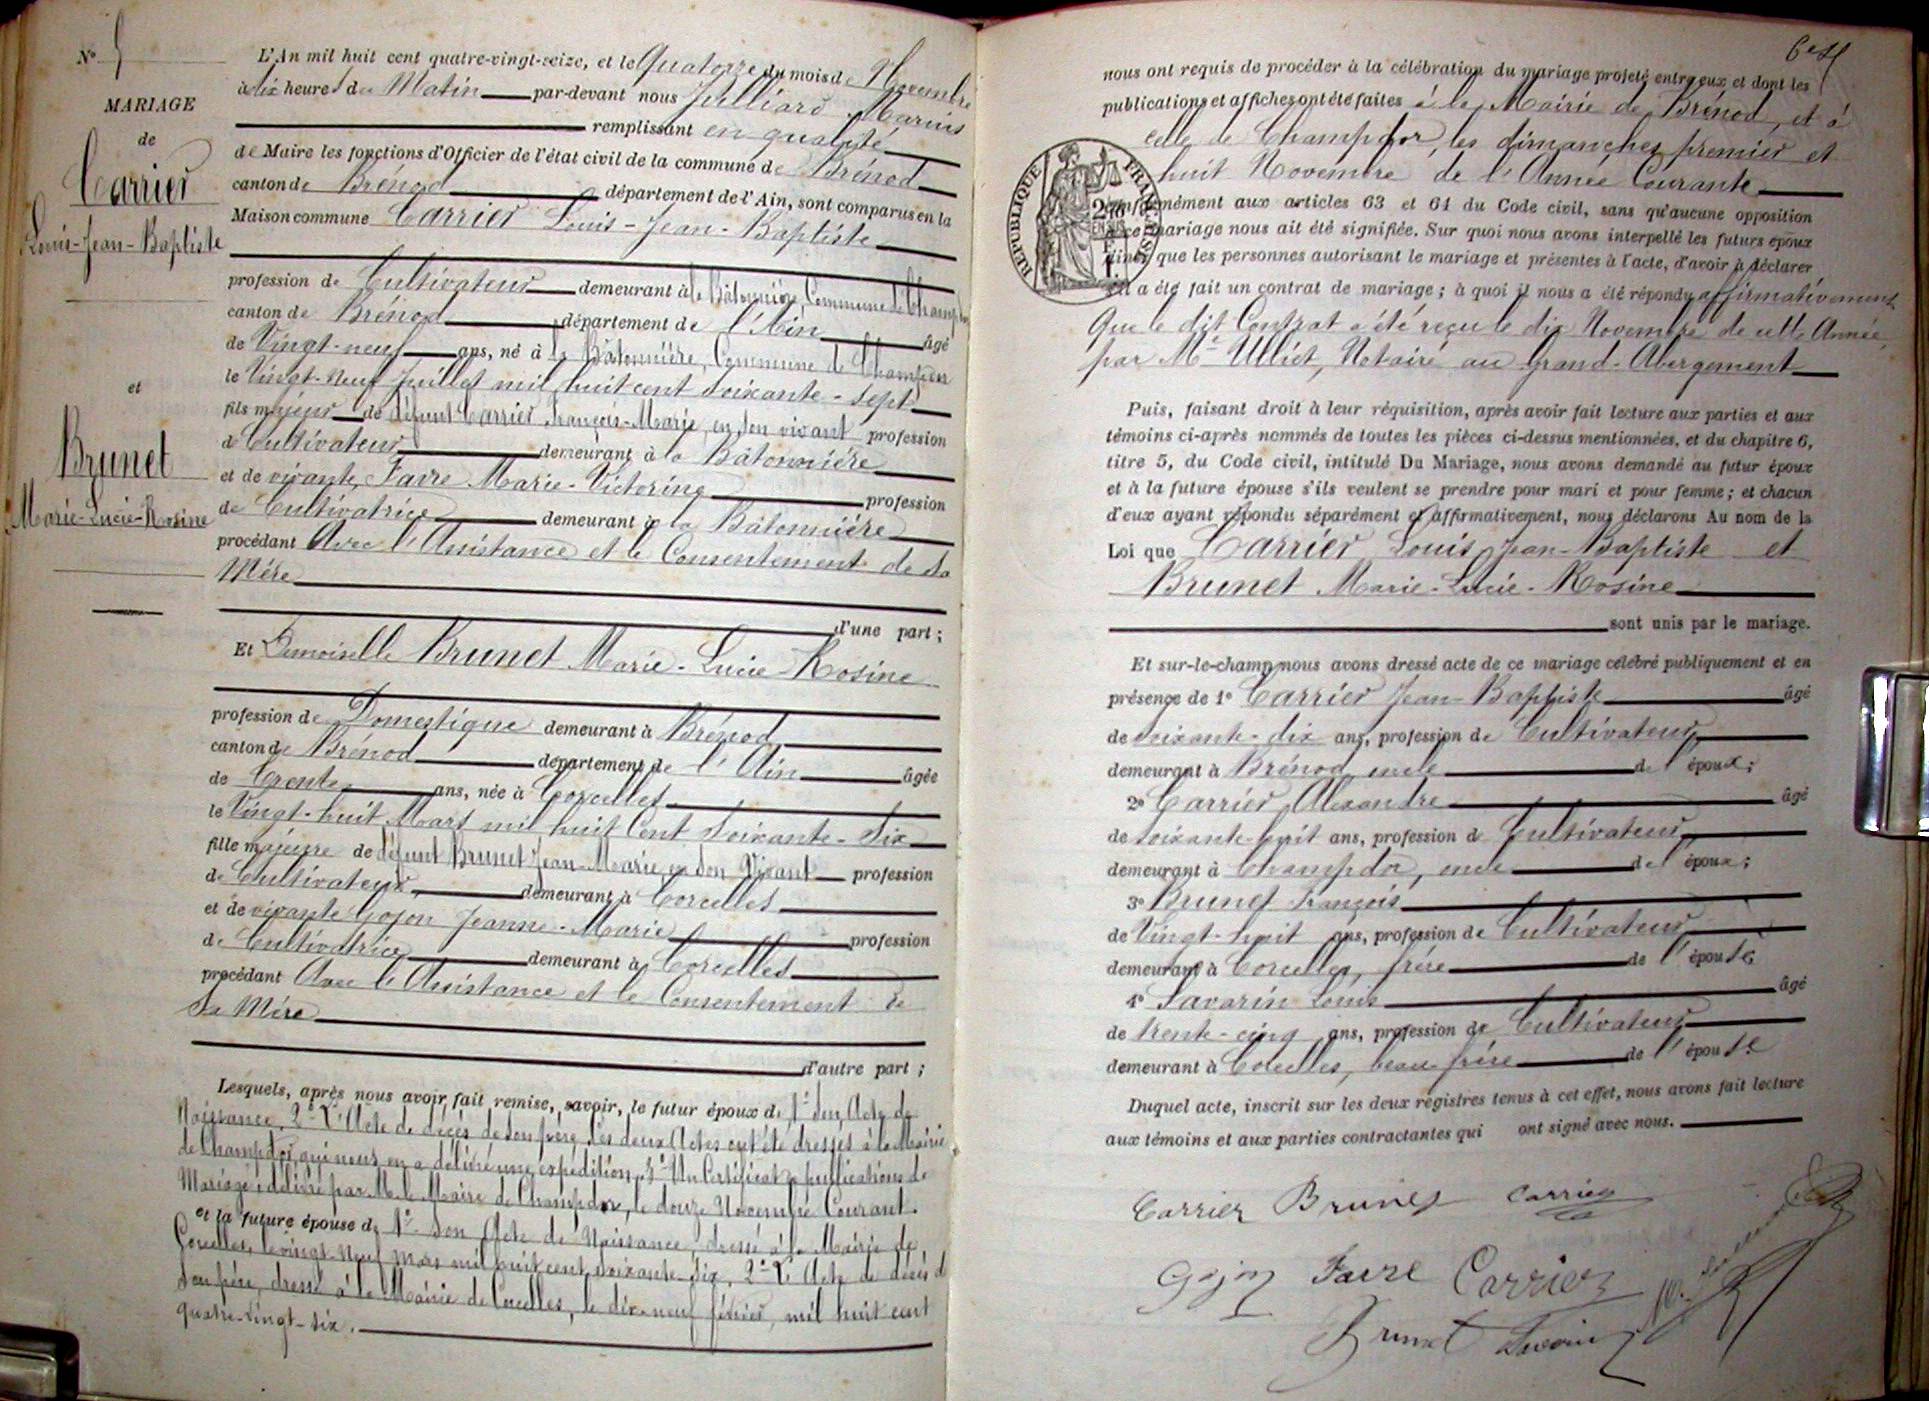 N° 5
MARIAGE
de
Carrier
Louis-Jean-Baptiste
et
Brunet
Marie-Lucie-Rosine
L'An mil huit cent quatre-vingt-seize, et le Quatorze du mois de Novembre
à dix heures du Matin par-devant nous Julliard Marius
remplissant en qualité
de Maire les fonctions d'Officier de l'état civil de la commune de Brénod
canton de Brénod département de l'Ain, sont comparus en la
Maison commune Carrier Louis-Jean-Baptiste
profession de Cultivateur demeurant à la Bâtonnière, Commune de Champdor
canton de Brénod département de l'Ain âgé
de Vingt-neuf ans, né à la Bâtonnière, Commune de Champdor
le Vingt-Neuf Juillet mil huit cent soixante-sept
fils majeur de défunt Carrier François-Marie, en son vivant profession
de Cultivateur demeurant à la Bâtonnière
et de vivante Favre Marie-Victorine profession
de Cultivatrice demeurant à la Bâtonnière
procédant Avec l'Assistance et le Consentement de sa
Mère
d'une part ;
Et Demoiselle Brunet Marie-Lucie-Rosine
profession de Domestique demeurant à Brénod
canton de Brénod département de l'Ain âgée
de Trente ans, née à Corcelles
le Vingt-huit Mars mil huit Cent Soixante-Six
fille majeure de défunt Brunet Jean-Marie, en son Vivant profession
de Cultivateur, demeurant à Corcelles
et de vivante Gojon Jeanne-Marie profession
de Cultivatrice demeurant à Corcelles
procédant Avec l'Assistance et le Consentement de
Sa Mère
d'autre part ;
Lesquels, après nous avoir fait remise, savoir, le futur époux de 1° Son Acte de
Naissance, 2° L'Acte de décès de son père, Les deux Actes ont été dressés à la Mairie
de Champdor, qui nous en a délivré une expédition, 3° Un Certificat de publications de
Mariage, délivré par M. le Maire de Champdor, le douze Novembre Courant.
et la future épouse de 1° Son Acte de Naissance, dressé à la Mairie de
Corcelles, le vingt-Neuf Mars mil huit cent soixante-six, 2° L'Acte de décès de
son père, dressé à la Mairie de Corcelles, le dix-neuf février, mil huit cent
quatre-vingt-six.
nous ont requis de procéder à la célébration du mariage projeté entre eux et dont les
publications et affiches ont été faites à la Mairie de Brénod, et à
celle de Champdor, les dimanches premier et
huit Novembre de l'Année Courante
RÉPUBLIQUE FRANÇAISE
conformément aux articles 63 et 64 du Code civil, sans qu'aucune opposition
à ce mariage nous ait été signifiée. Sur quoi nous avons interpellé les futurs époux
ainsi que les personnes autorisant le mariage et présentes à l'acte, d'avoir à déclarer
s'il a été fait un contrat de mariage ; à quoi il nous a été répondu affirmativement
Que le dit Contrat a été reçu le dix Novembre de cette Année,
par Me Ulliet, Notaire au Grand-Abergement
Puis, faisant droit à leur réquisition, après avoir fait lecture aux parties et aux
témoins ci-après nommés de toutes les pièces ci-dessus mentionnées, et du chapitre 6,
titre 5, du Code civil, intitulé Du Mariage, nous avons demandé au futur époux
et à la future épouse s'ils veulent se prendre pour mari et pour femme ; et chacun
d'eux ayant répondu séparément et affirmativement, nous déclarons Au nom de la
Loi que Carrier Louis Jean-Baptiste et
Brunet Marie-Lucie-Rosine
sont unis par le mariage.
Et sur-le-champ nous avons dressé acte de ce mariage célébré publiquement et en
présence de 1° Carrier Jean-Baptiste âgé
de soixante-dix ans, profession de Cultivateur,
demeurant à Brénod, oncle de l'époux ;
2° Carrier Alexandre âgé
de soixante-huit ans, profession de Cultivateur,
demeurant à Champdor, oncle de l'époux ;
3° Brunet François
de Vingt-huit ans, profession de Cultivateur
demeurant à Corcelles, frère de l'épouse
4° Savarin Louis âgé
de trente-cinq ans, profession de Cultivateur
demeurant à Corcelles, beau-frère de l'épouse
Duquel acte, inscrit sur les deux régistres tenus à cet effet, nous avons fait lecture
aux témoins et aux parties contractantes qui ont signé avec nous.
Carrier Brunet Carrier
Gojon Favre Carrier
Brunet Savarin